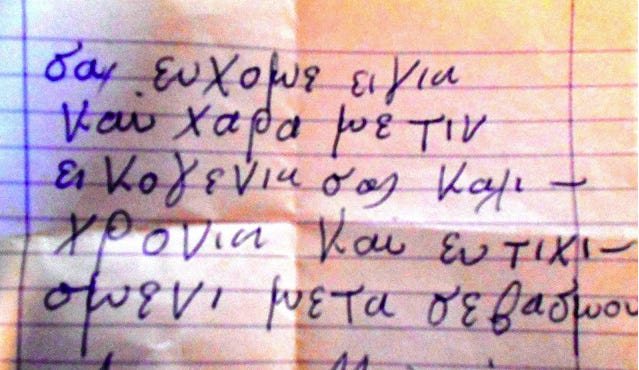 σας ευχομε ειγια
και χαρα με τιν
εικογενια σας καλι-
χρονια και ευτιχι-
σμενι μετα σεβασμου